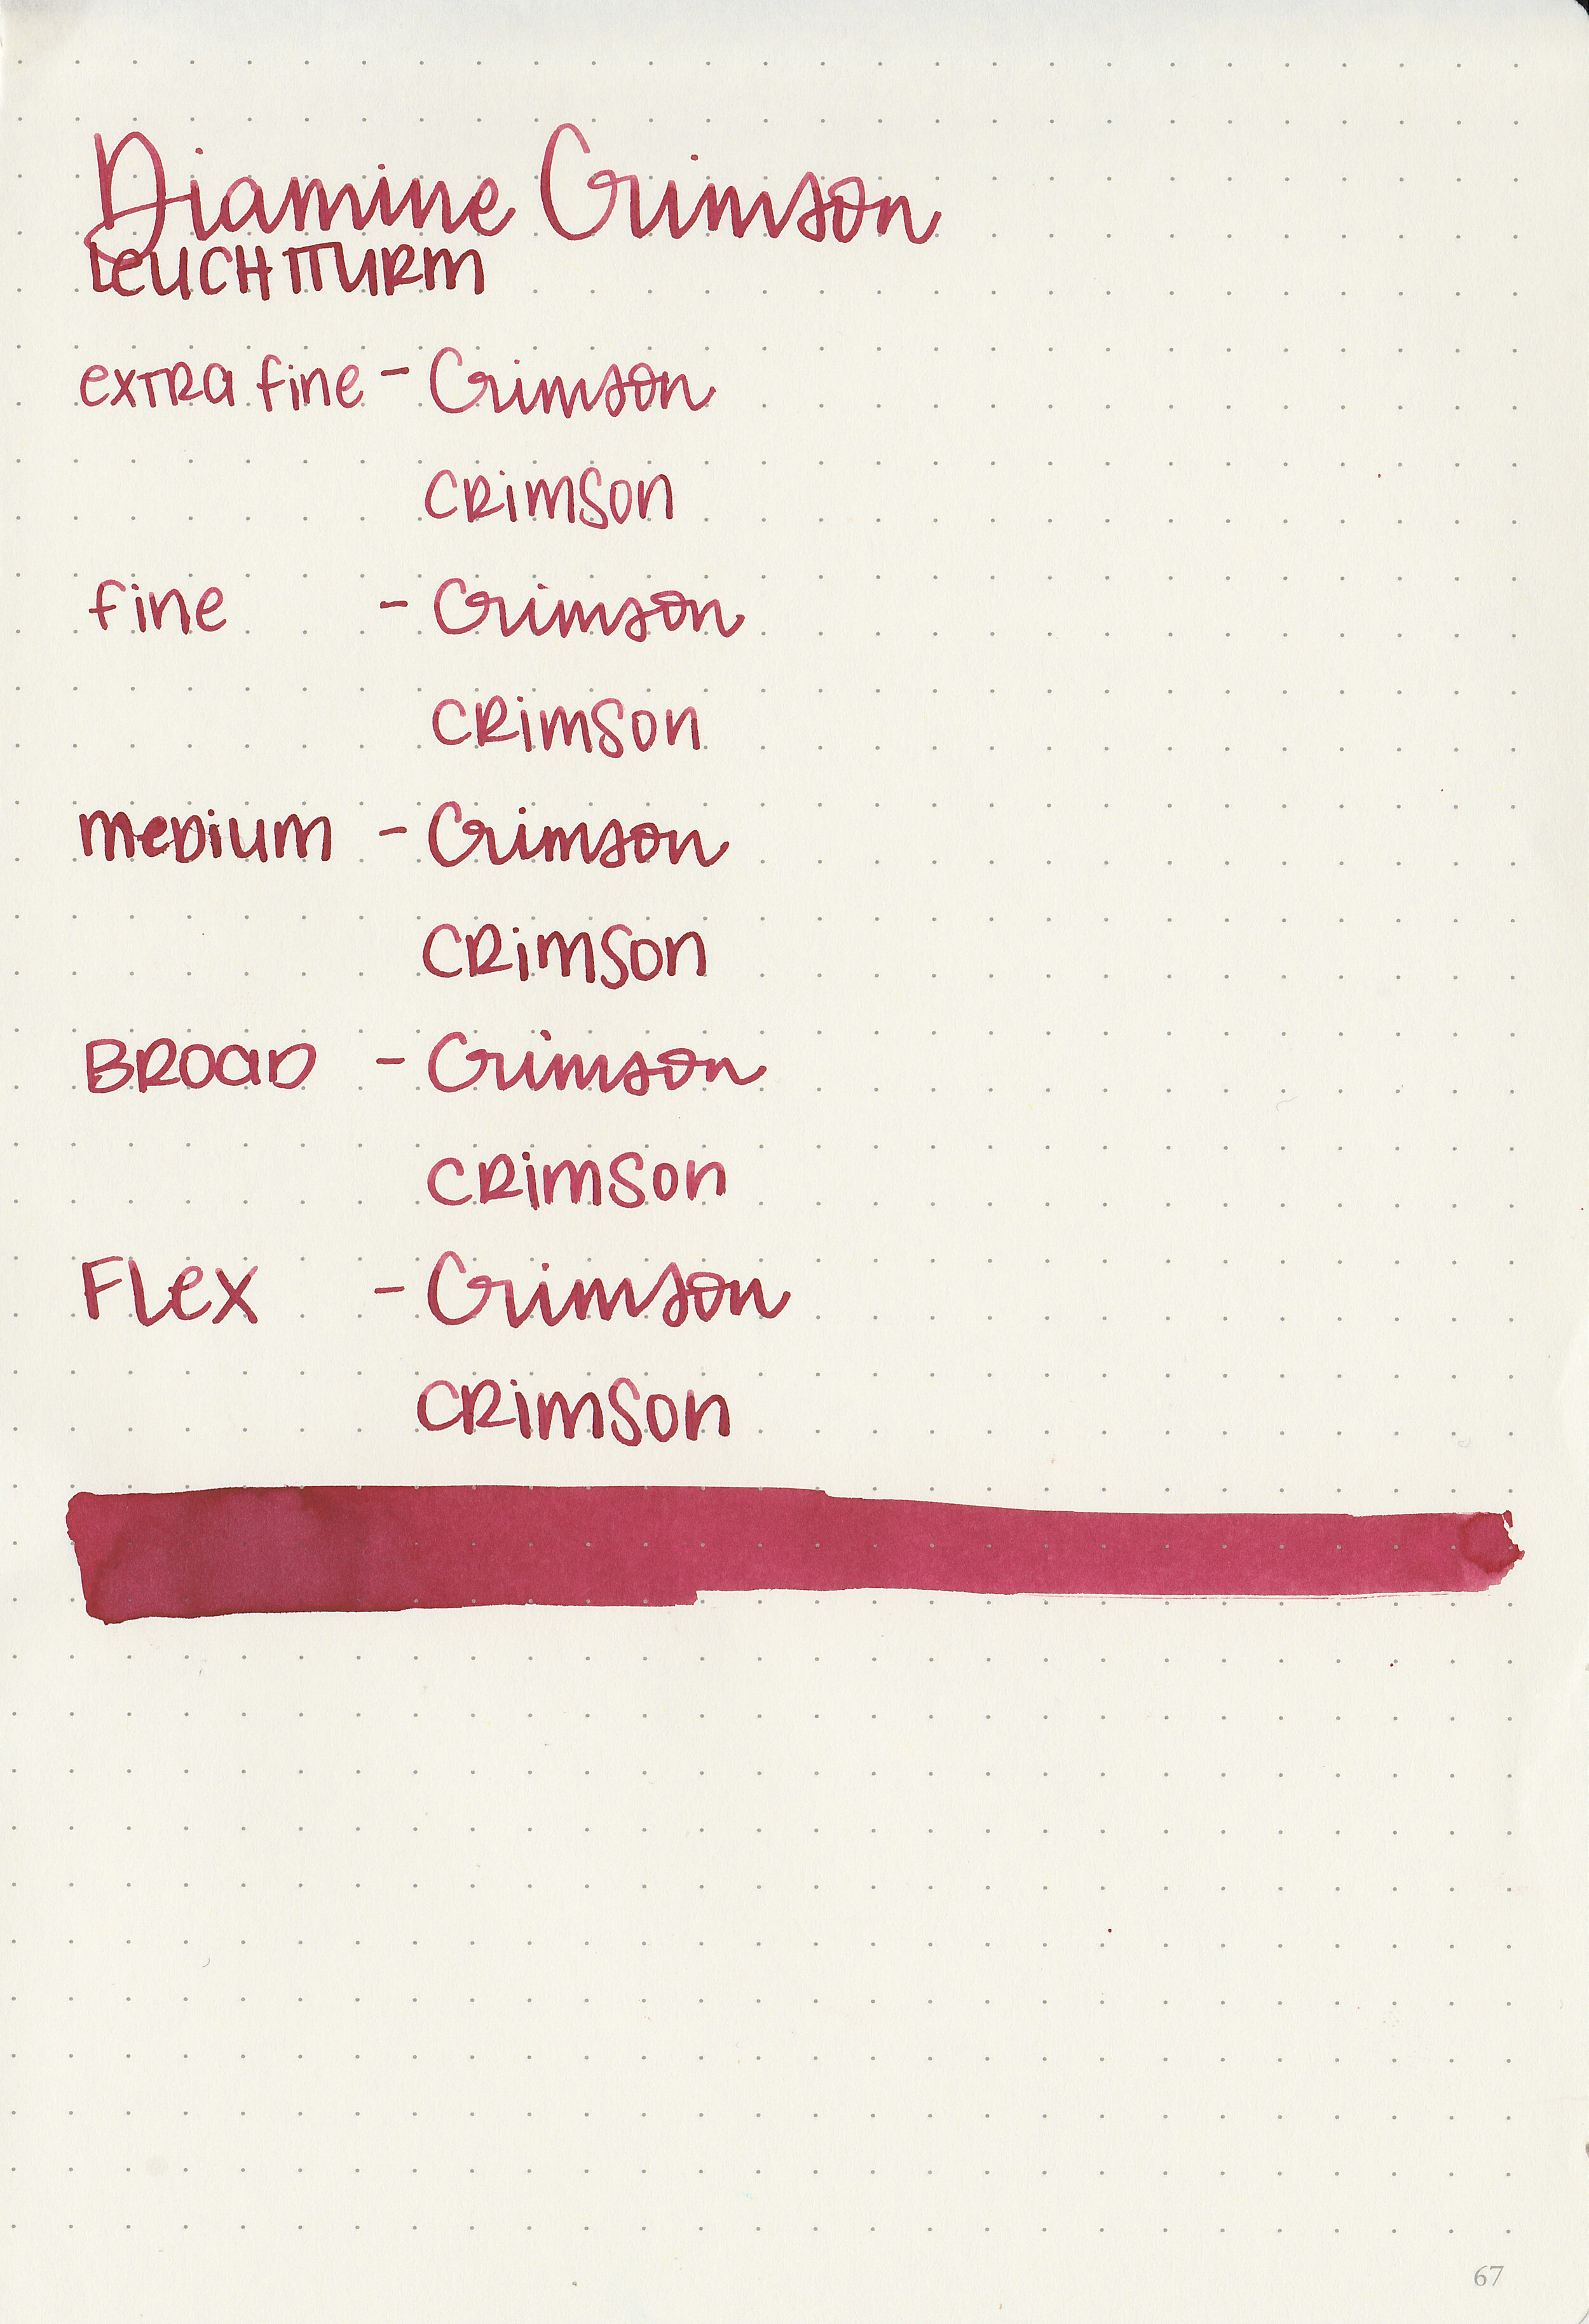 Diamine Crimson
LEUCHTTURM
extra fine - Crimson
Crimson
fine - Crimson
Crimson
medium - Crimson
Crimson
Broad - Crimson
Crimson
Flex - Crimson
Crimson
67